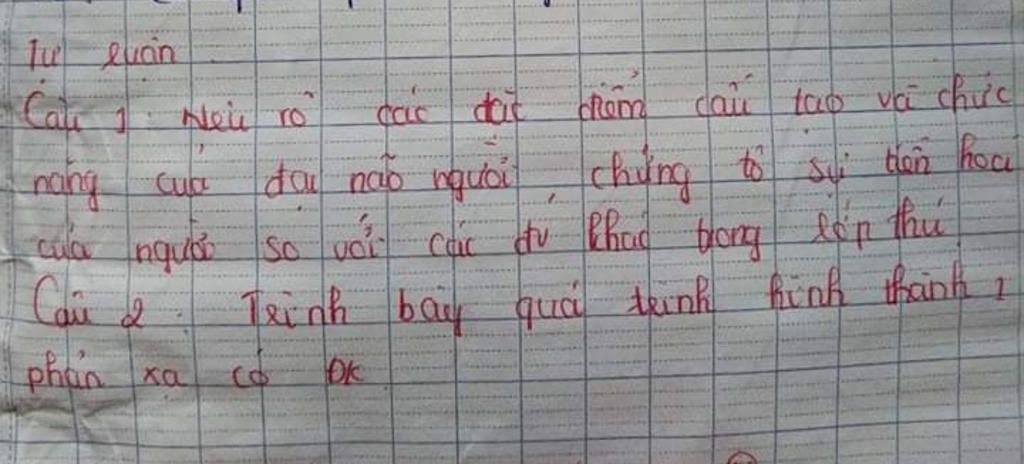 Tự luận
Câu 1: Nêu rõ các đặc điểm cấu tạo và chức
năng của đại não người chứng tỏ sự tiến hoá
của người so với các đv khác trong lớp thú
Câu 2: Trình bày quá trình hình thành 1
phản xạ có ĐK